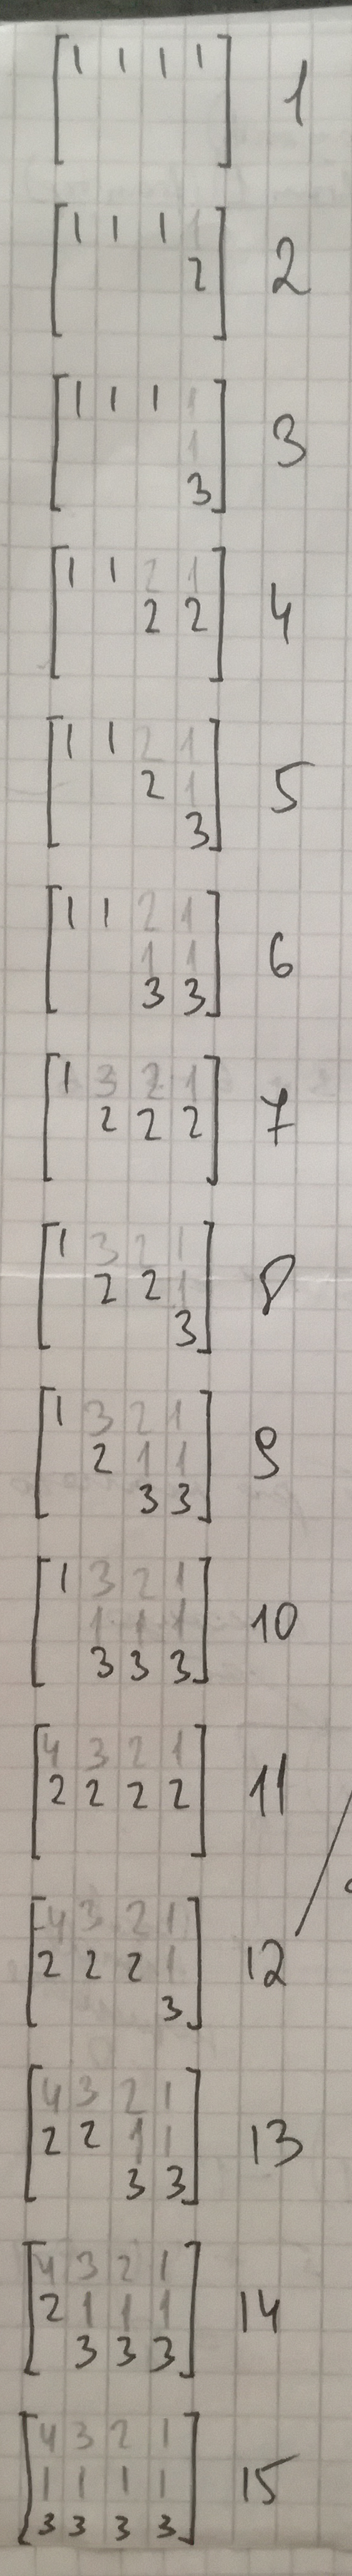 [1 1 1 1] 1
[1 1 1 1
2] 2
[1 1 1 1
1
3] 3
[1 1 2 1
2 2] 4
[1 1 2 1
2 1
3] 5
[1 1 2 1
1 1
3 3] 6
[1 3 2 1
2 2 2] 7
[1 3 2 1
2 2 1
3] 8
[1 3 2 1
2 1 1
3 3] 9
[1 3 2 1
1 1 1
3 3 3] 10
[4 3 2 1
2 2 2 2] 11
[4 3 2 1
2 2 2 1
3] 12
[4 3 2 1
2 2 1 1
3 3] 13
[4 3 2 1
2 1 1 1
3 3 3] 14
[4 3 2 1
1 1 1 1
3 3 3 3] 15